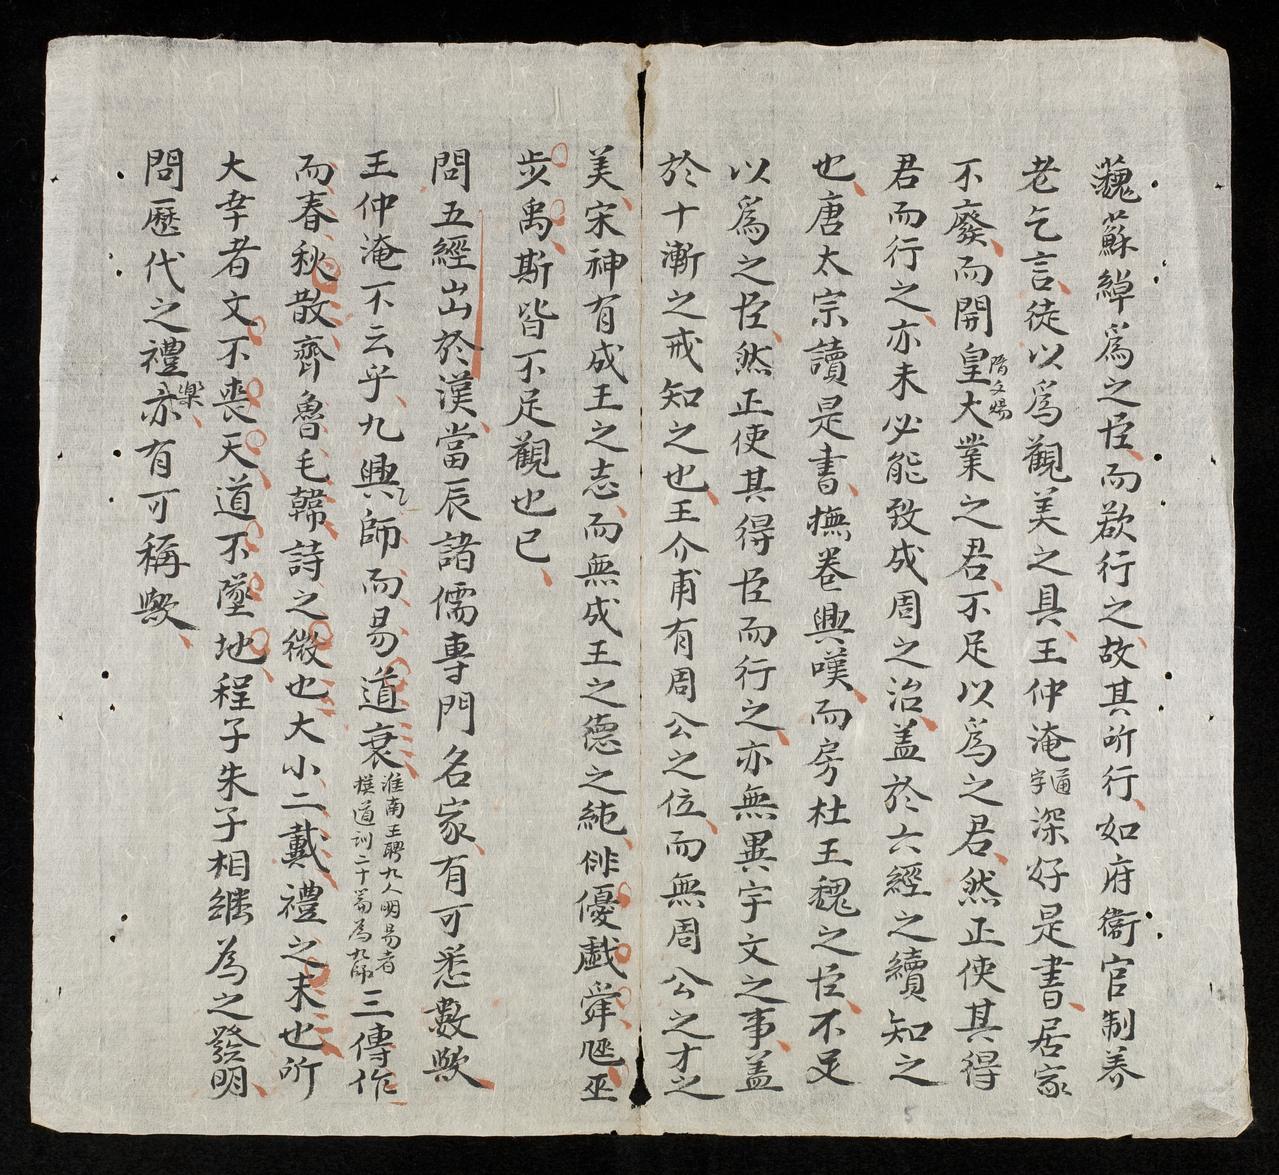 魏蘇綽爲之臣而欲行之故其所行如府衞官制养
老乞言徒以爲觀美之具王仲淹通字深好是書居家
不廢而開皇大業隋文煬之君不足以爲之君然正使其得
君而行之亦未必能致成周之治盖於六經之續知之
也唐太宗讀是書撫卷興嘆而房杜王魏之臣不足
以爲之臣然正使其得臣而行之亦無異宇文之事盖
於十漸之戒知之也王介甫有周公之位而無周公之才之
美宋神有成王之志而無成王之德之純俳優戱舜尩巫
步禹斯皆不足觀也已
問五經出於漢當辰諸儒專門名家有可悉數歟
王仲淹不云乎九興師而易道衰淮南王聘九人明易者撰道训二十篇為九師三傳作
而春秋散齊魯毛韓詩之微也大小二戴禮之末也所
大幸者文不喪天道不墜地程子朱子相継為之發明
問歷代之禮樂亦有可稱歟